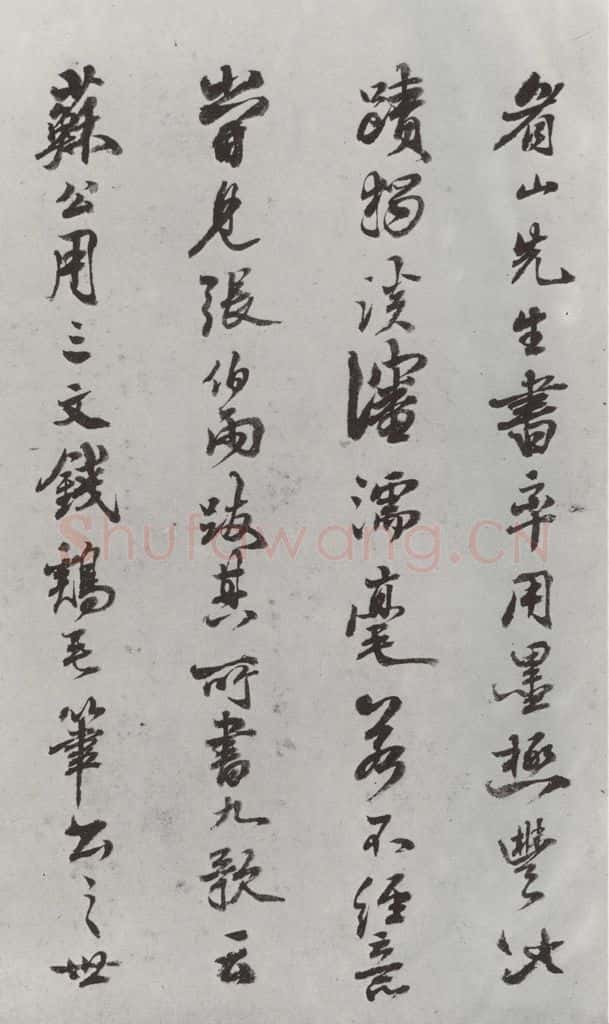 眉山先生書率用墨極豐此
蹟獨淡瀋濡毫若不經意
嘗見張伯雨跋其所書九歌云
蘇公用三文錢鷄毛筆公之世
Shufawang.CN